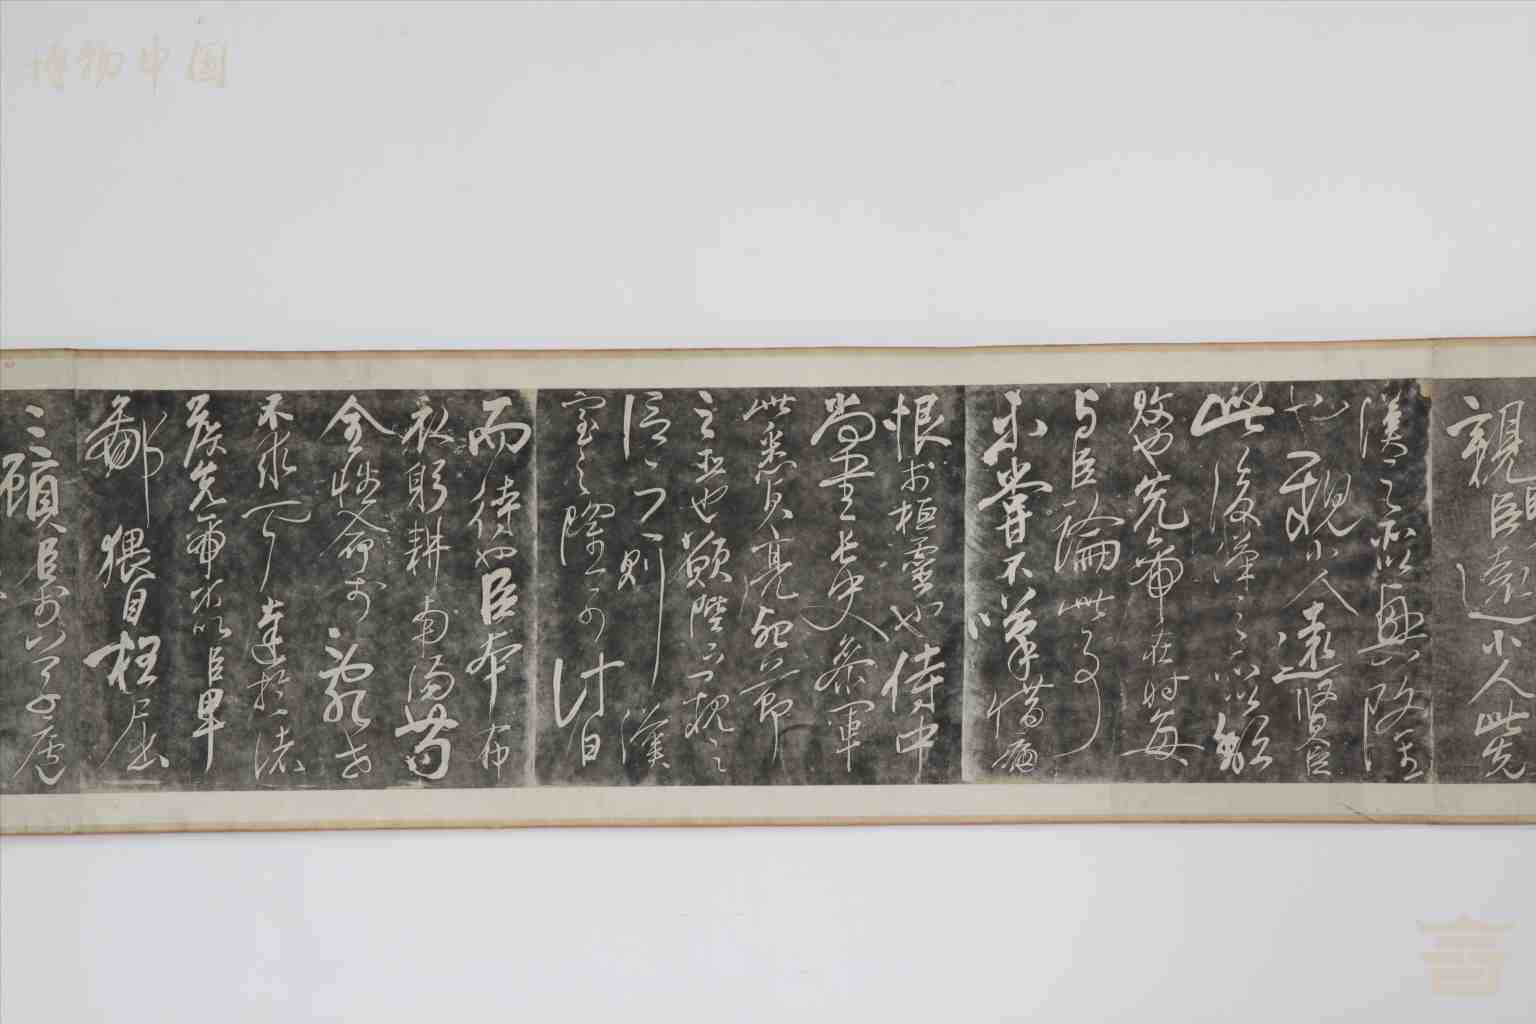 博物中国
親臣遠小人此先
漢之所以興隆
也親小人遠賢臣
此後漢之所以傾
頹也先帝在時每
與臣論此事
未嘗不嘆惜痛
恨於桓靈也侍中
尚書長史參軍
此悉貞亮死節
之臣也願陛下親之
信之則漢
室之隆可計日
而待也臣本布
衣躬耕南陽苟
全性命於亂世
不求聞達於諸
侯先帝不以臣卑
鄙猥自枉屈
三顧臣於草廬